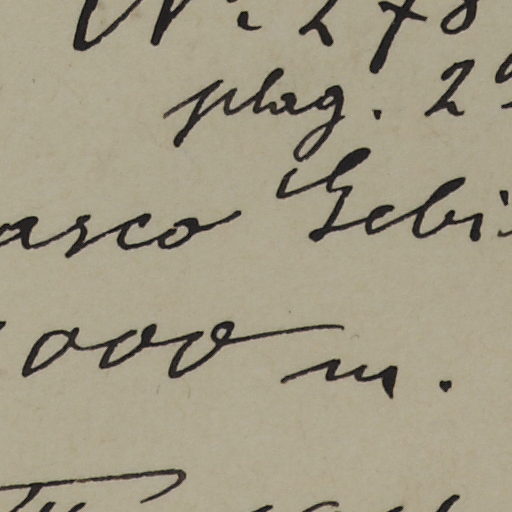 No 278
plag. 2
asco Gebi
000 m.